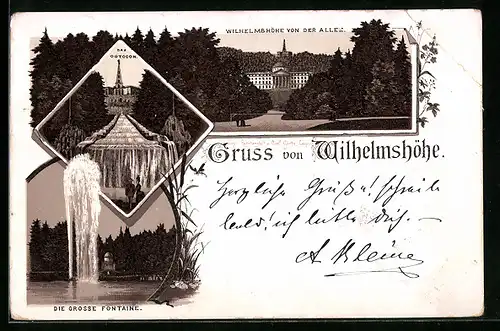 WILHELMSHÖHE VON DER ALLEE.
DAS
OCTOGON.
Gruss von Wilhelmshöhe.
Herzliche Grüße! schreibe
bald! ich bitte dich.
A Kleine
DIE GROSSE FONTAINE.